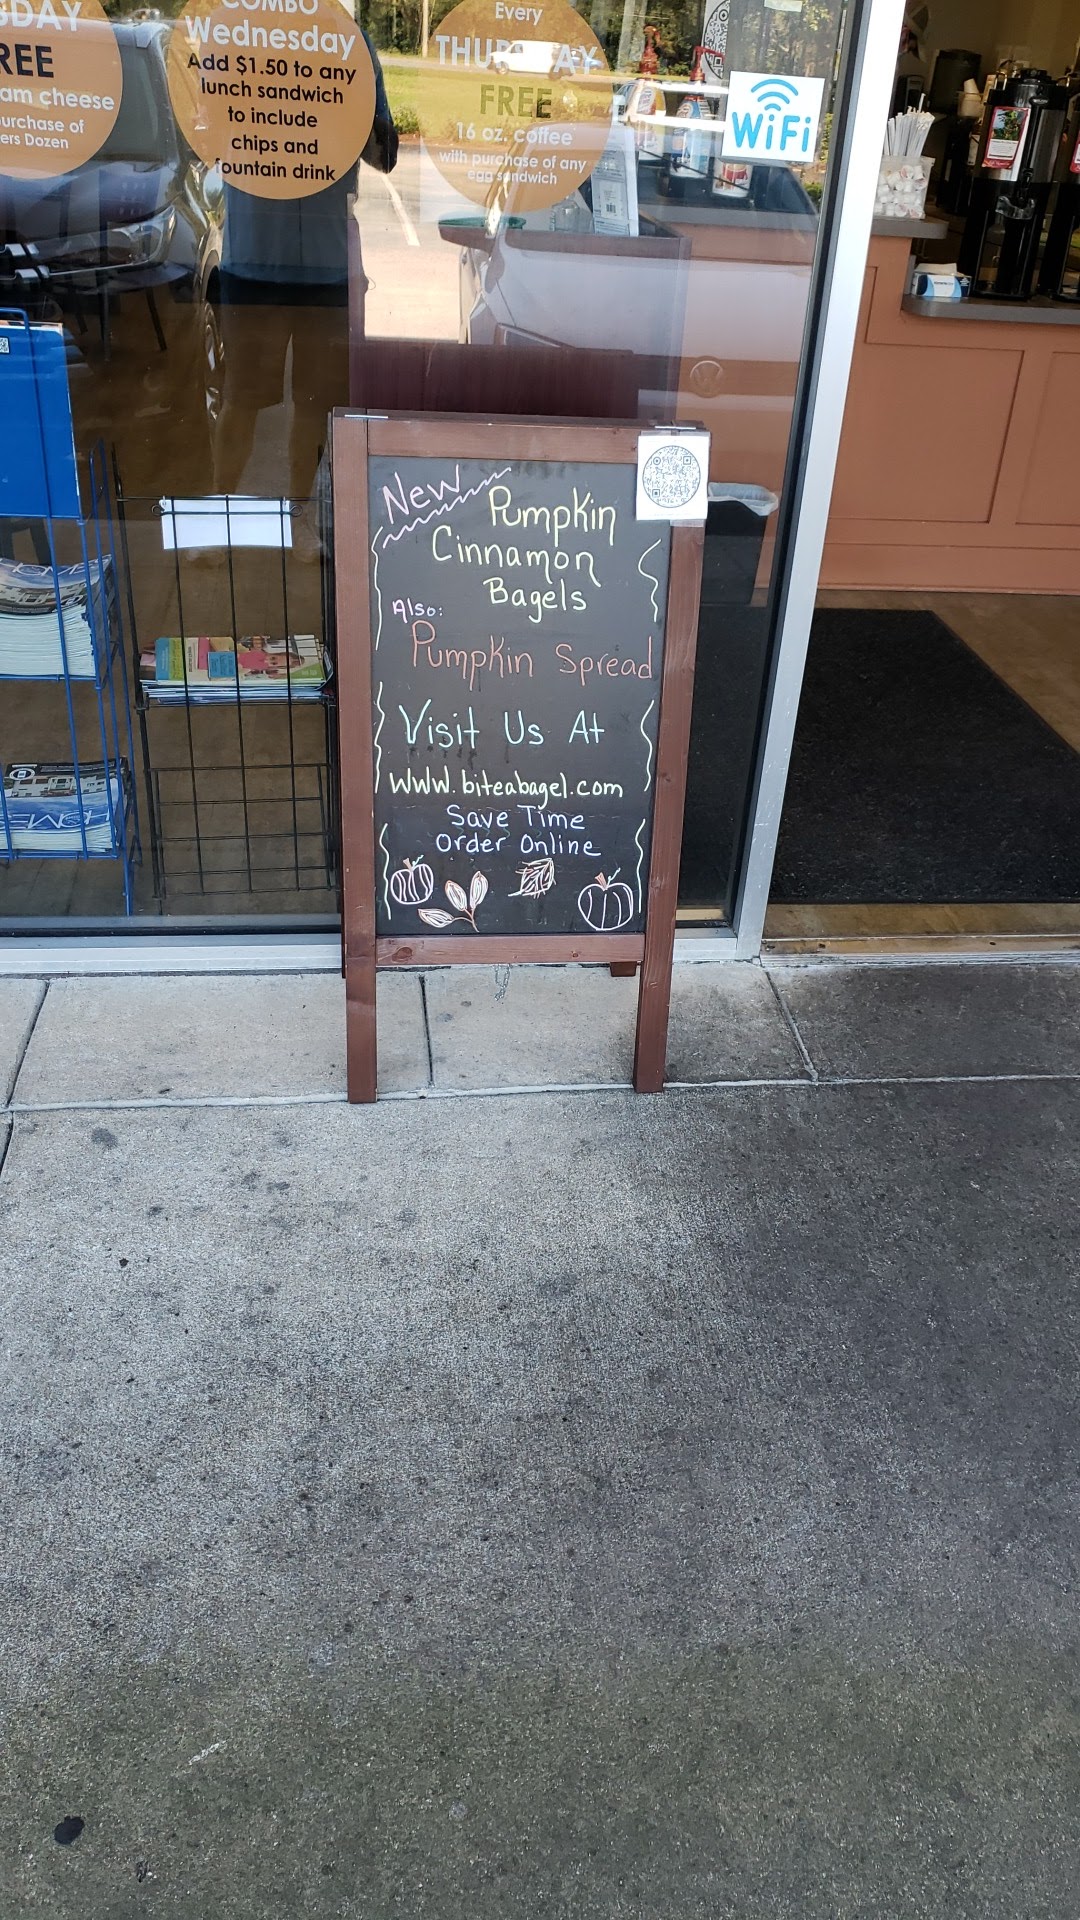 FREE
COMBO
Wednesday
Add $1.50 to any
lunch sandwich
to include
chips and
fountain drink
Every
THURSDAY
FREE
16 oz. coffee
with purchase of any
egg sandwich
WiFi
New
Pumpkin
Cinnamon
Bagels
Also:
Pumpkin Spread
Visit Us At
www.biteabagel.com
Save Time
Order Online